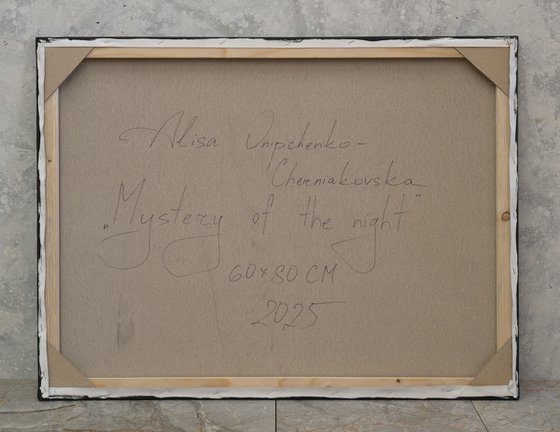 Alisa Onipchenko-
Cherniakovska
„Mystery of the night"
60×80 CM
2025